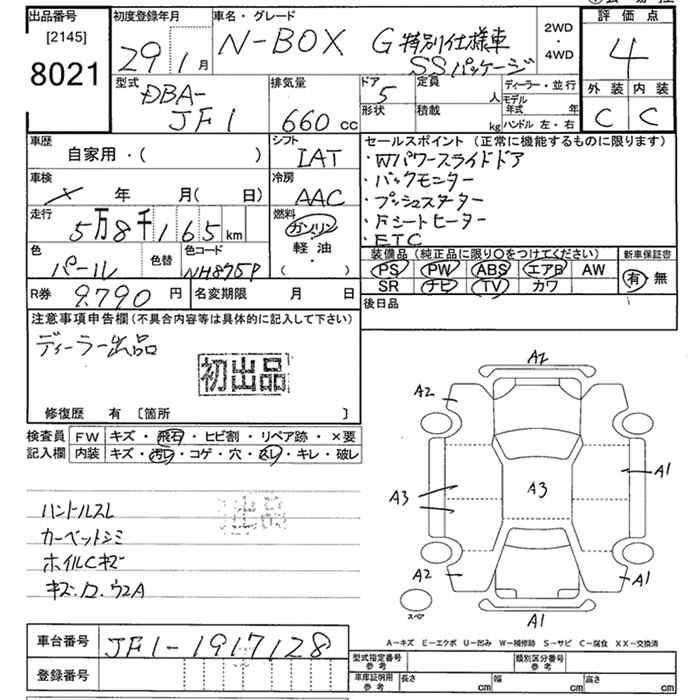 出品番号
[2145]
8021
初度登録年月
29 1月
車名・グレード
N-BOX G特別仕様車
SSパッケージ
2WD
・
4WD
評価点
4
外装 内装
C C
型式
DBA-
JF1
排気量
660cc
ドア
5
定員
人
形状
積載
kg
ディーラー・並行
モデル年式 年
ハンドル 左・右
車歴
自家用・( )
シフト
IAT
車検
× 年 月( 日)
冷房
AAC
走行
5万8千165km
燃料
ガソリン
軽・油
( )
色
パール
色替
色コード
NH875P
R券 9.790円
名変期限 月 日
セールスポイント(正常に機能するものに限ります)
・Wパワースライドドア
・バックモニター
・プッシュスターター
・Fシートヒーター
・ETC
装備品(純正品に限り〇をつけてください)
PS PW ABS エアB AW
SR ナビ TV カワ
新車保証書
有・無
後日品
注意事項申告欄(不具合内容等は具体的に記入して下さい)
ディーラー出品
初出品
修復歴 有 [箇所 ]
検査員
記入欄
FW キズ・飛石・ヒビ割・リペア跡・×要
内装 キズ・汚レ・コゲ・穴・スレ・キレ・破レ
出品
ハンドルスレ
カーペットシミ
ホイルCキズ
キズ.ロ.ウ2A
A2
A2
A1
A3
A3
A2
A1
A1
スペア
A-キズ E-エクボ U-凹み W-補修跡 S-サビ C-腐食 XX-交換済
車台番号 JF1-1917128
登録番号
型式指定番号
参考
類別区分番号
参考
車庫証明用
参考
長さ cm
幅 cm
高さ cm